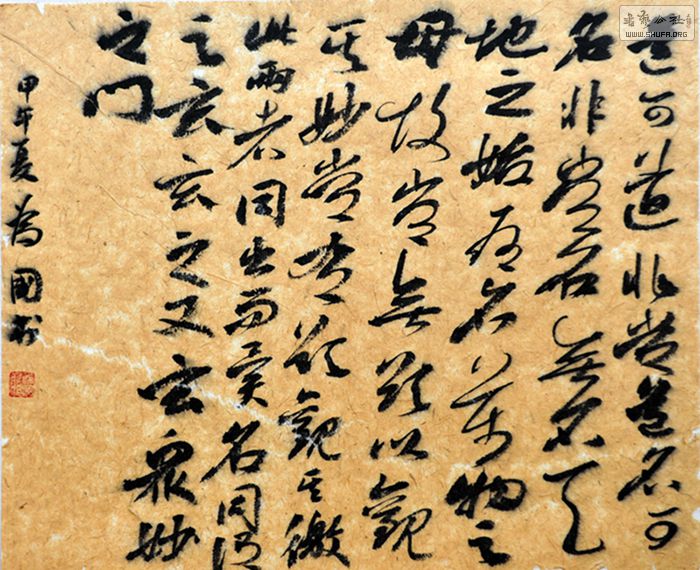 道可道非常道名可
名非常名無名天
地之始有名萬物之
母故常無欲以觀
其妙常有欲觀其徼
此兩者同出而異名同謂
之玄玄之又玄衆妙
之門
甲午夏為國書
WWW.SHUFA.ORG